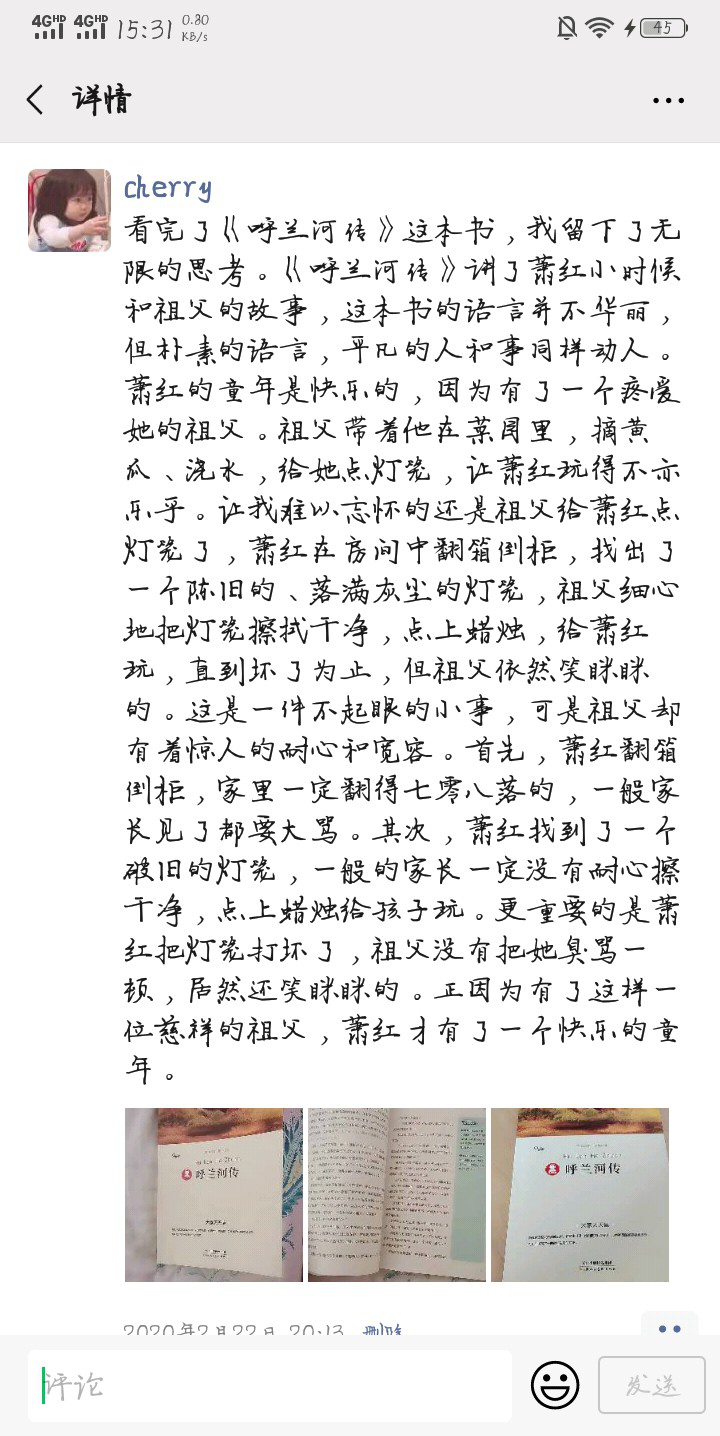 4GHD 4GHD 15:31 0.80 KB/s 45
详情
cherry
看完了《呼兰河传》这本书，我留下了无
限的思考。《呼兰河传》讲了萧红小时候
和祖父的故事，这本书的语言并不华丽，
但朴素的语言，平凡的人和事同样动人。
萧红的童年是快乐的，因为有了一个疼爱
她的祖父。祖父带着他在菜园里，摘黄
瓜、浇水，给她点灯笼，让萧红玩得不亦
乐乎。让我难以忘怀的还是祖父给萧红点
灯笼了，萧红在房间中翻箱倒柜，找出了
一个陈旧的、落满灰尘的灯笼，祖父细心
地把灯笼擦拭干净，点上蜡烛，给萧红
玩，直到坏了为止，但祖父依然笑眯眯
的。这是一件不起眼的小事，可是祖父却
有着惊人的耐心和宽容。首先，萧红翻箱
倒柜，家里一定翻得七零八落的，一般家
长见了都要大骂。其次，萧红找到了一个
破旧的灯笼，一般的家长一定没有耐心擦
干净，点上蜡烛给孩子玩。更重要的是萧
红把灯笼打坏了，祖父没有把她臭骂一
顿，居然还笑眯眯的。正因为有了这样一
位慈祥的祖父，萧红才有了一个快乐的童
年。
呼兰河传
呼兰河传
2020年2月22日 20:13 删除
评论
发送